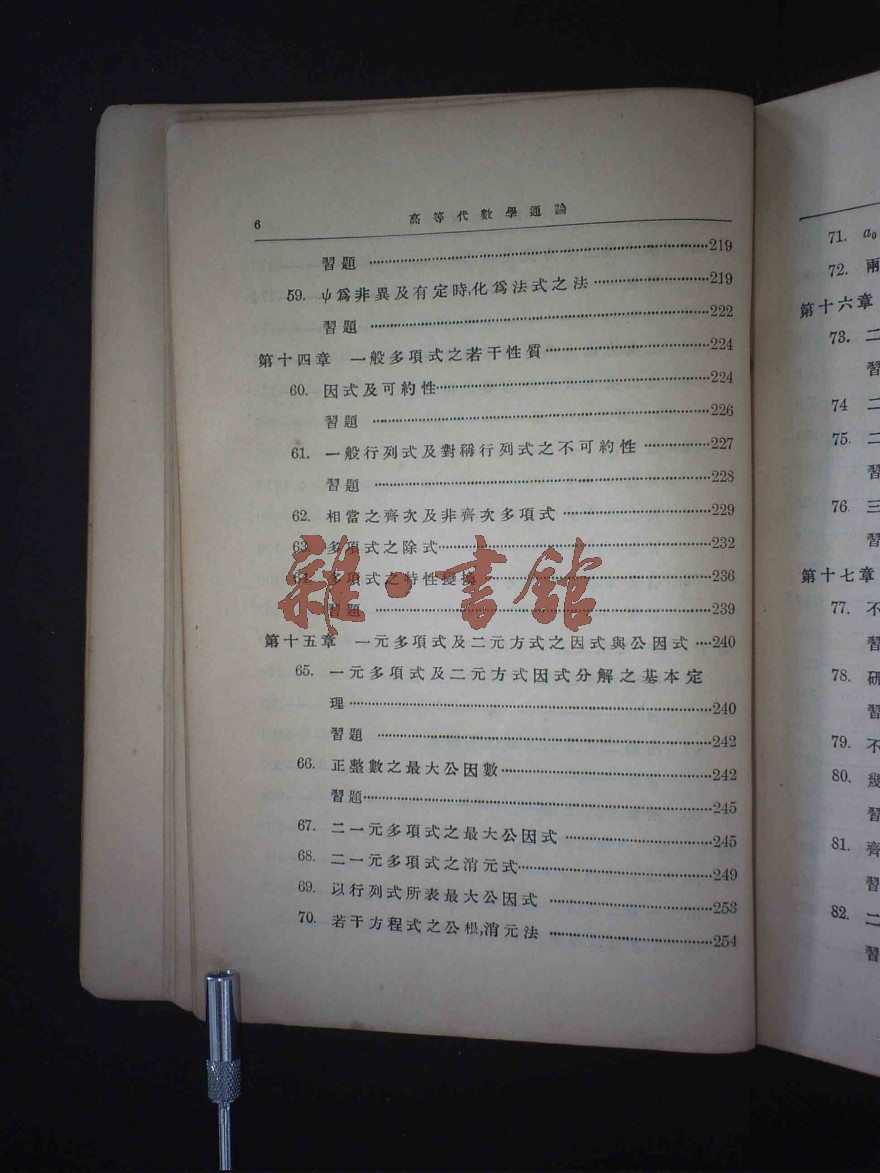 6 高等代數學通論
習題 ……219
59. ψ爲非異及有定時,化爲法式之法 ……219
習題 ……222
第十四章 一般多項式之若干性質 ……224
60. 因式及可約性 ……224
習題 ……226
61. 一般行列式及對稱行列式之不可約性 ……227
習題 ……228
62. 相當之齊次及非齊次多項式 ……229
63. 多項式之除式 ……232
64. 多項式之特性變換 ……236
習題 ……239
第十五章 一元多項式及二元方式之因式與公因式 ……240
65. 一元多項式及二元方式因式分解之基本定
理 ……240
習題 ……242
66. 正整數之最大公因數 ……242
習題 ……245
67. 二一元多項式之最大公因式 ……245
68. 二一元多項式之消元式 ……249
69. 以行列式所表最大公因式 ……253
70. 若干方程式之公根,消元法 ……254
雜·書館
71. a₀
72. 兩
第十六章
73. 二
習
74 二
75. 二
習
76 三
習
第十七章
77. 不
習
78. 研
習
79. 不
80. 幾
習
81. 齊
習
82. 二
習